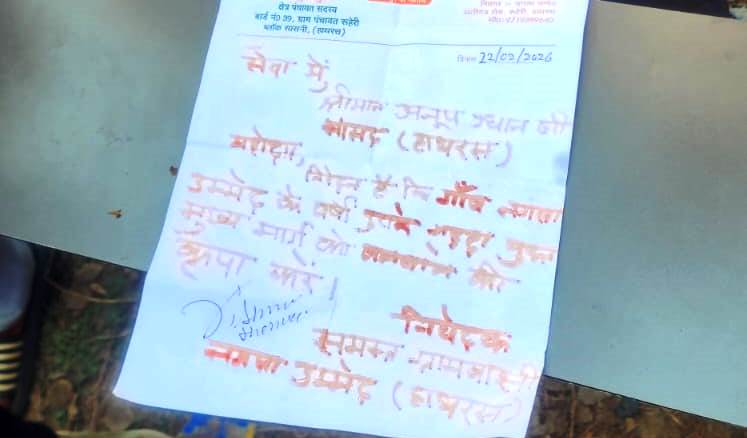 क्षेत्र पंचायत सदस्य
वार्ड नं0 39, ग्राम पंचायत रूहेरी
ब्लॉक सासनी, (हाथरस)
दिनांक 22/02/2026
सेवा में,
श्रीमान अनूप प्रधान जी
सांसद (हाथरस)
महोदय,
निवेदन है कि गाँव नगला
उम्मेद के वर्षों पुराने गड्ढा युक्त
मुख्य मार्ग को बनवाने की
कृपा करें।
निवेदक
समस्त ग्रामवासी
नगला उम्मेद (हाथरस)